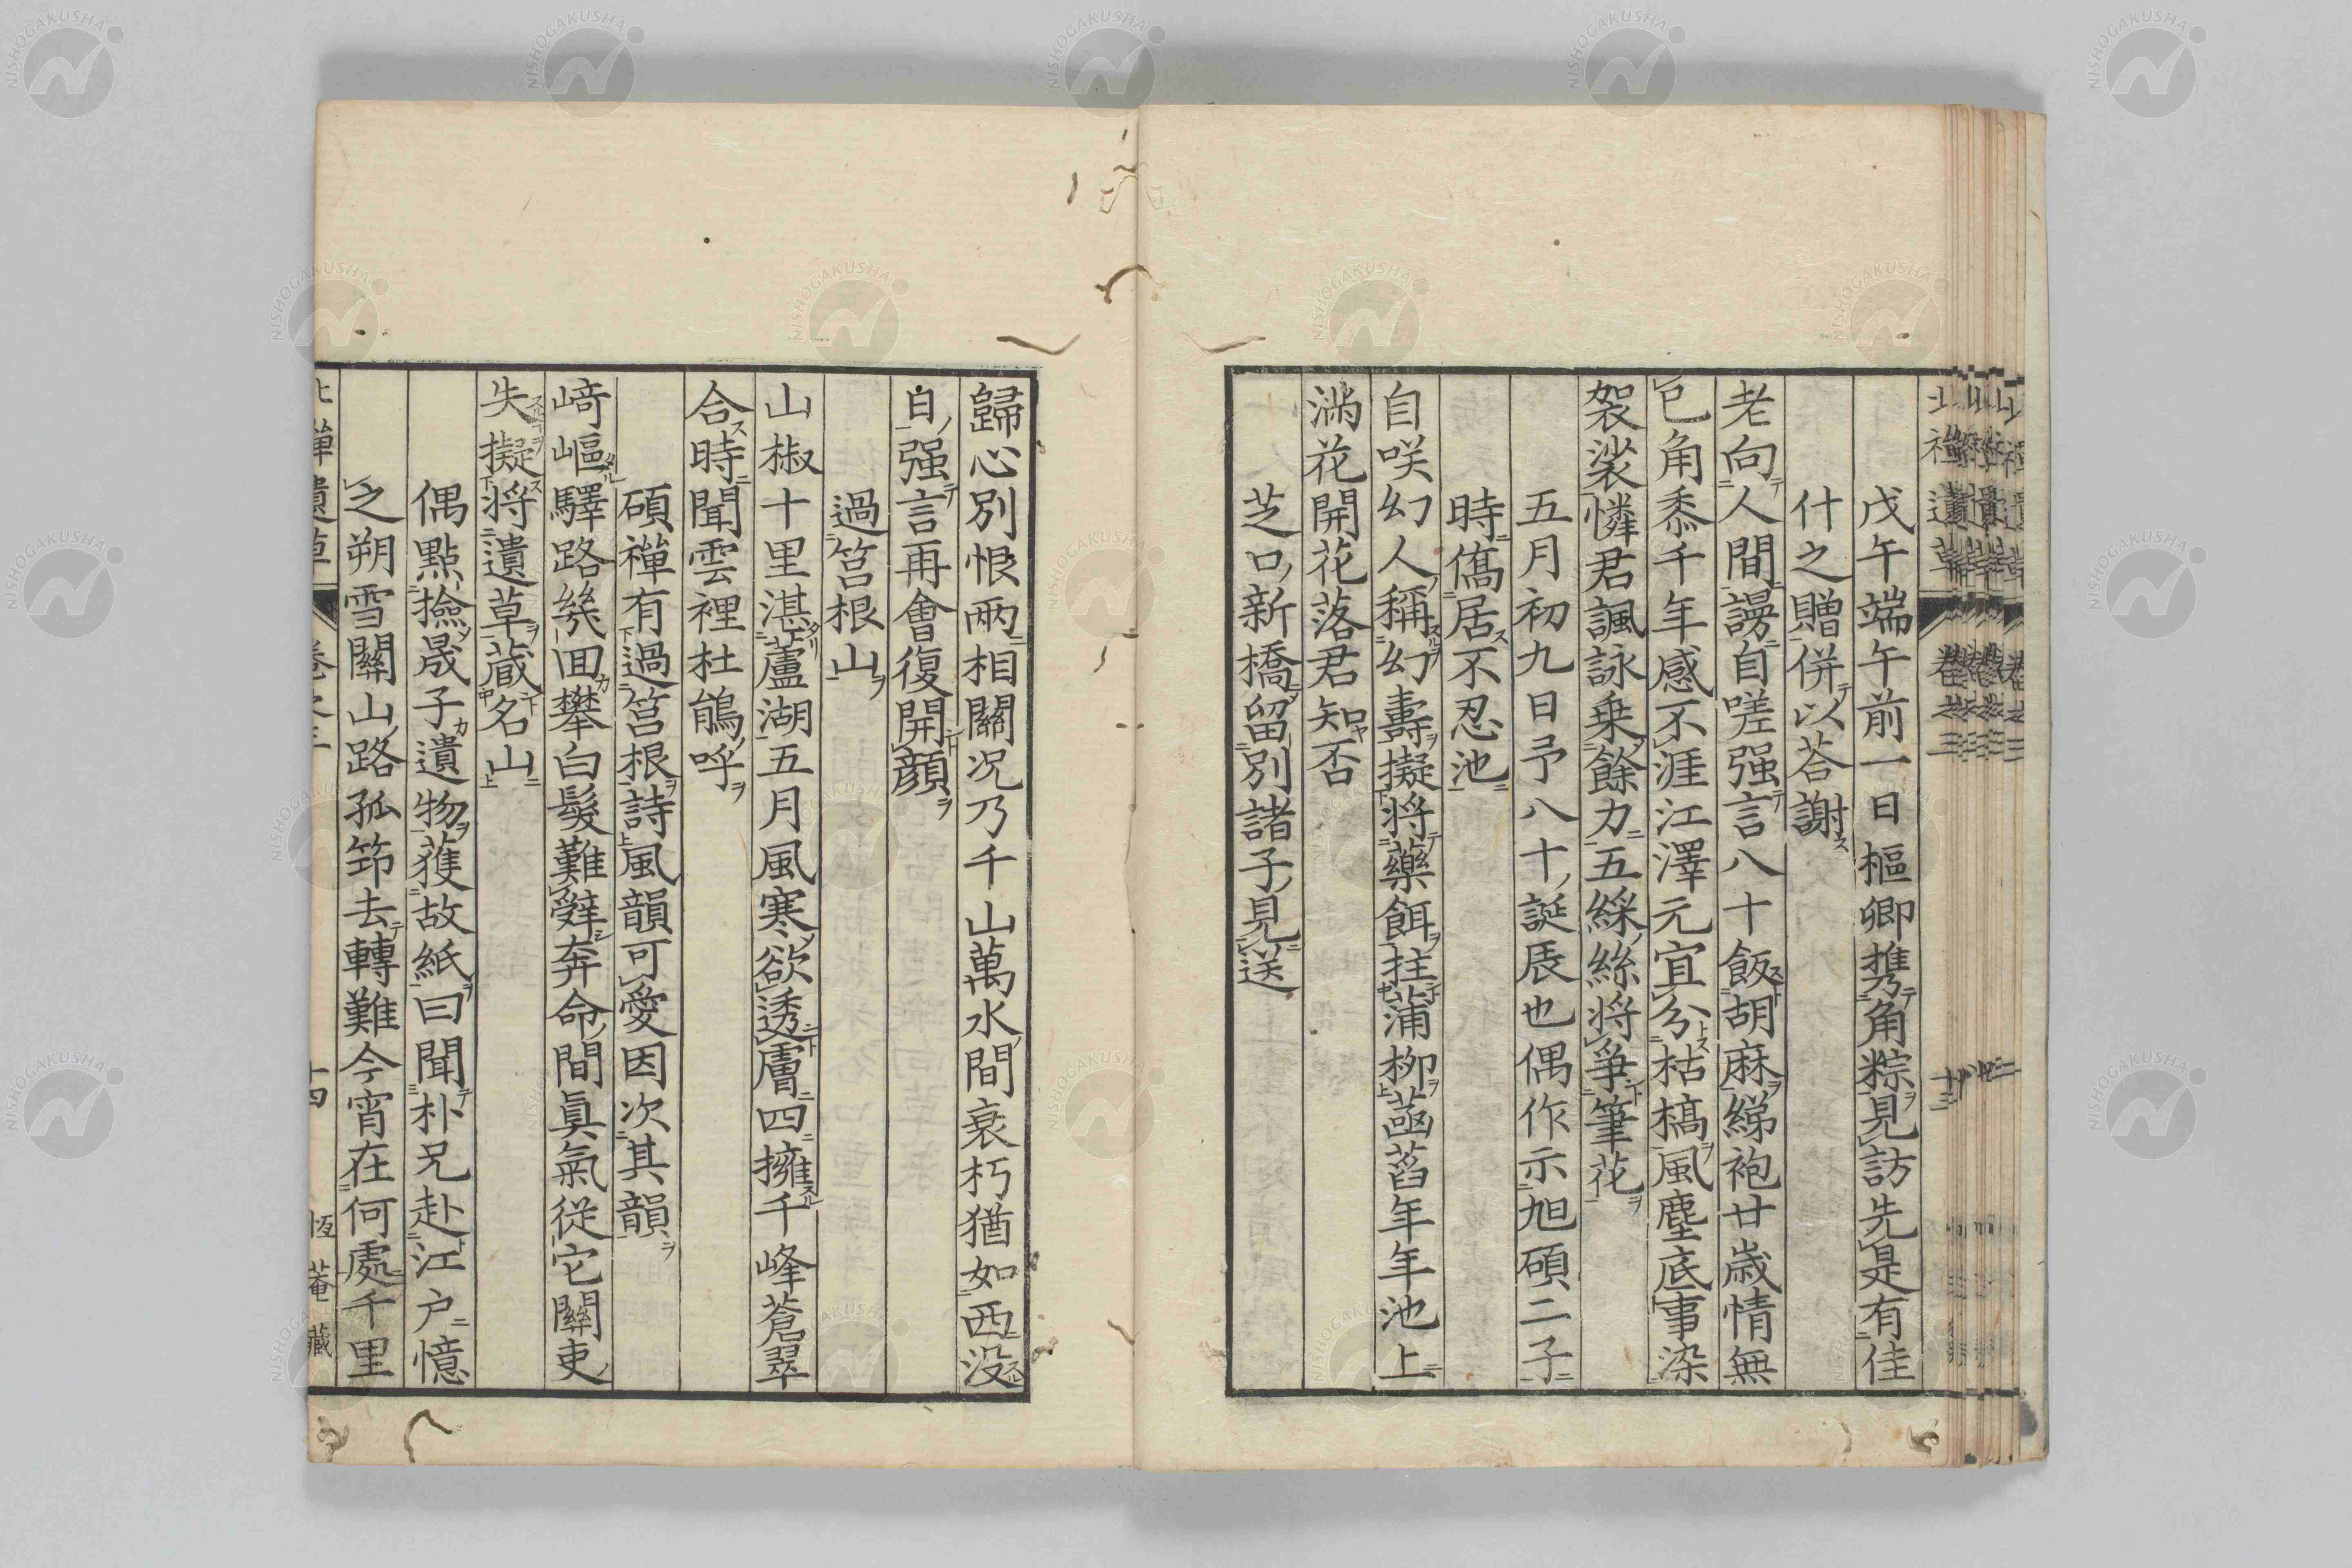 戊午端午前一日樞卿携角粽見訪先是有佳
什之贈併以荅謝
老向人間謾自嗟强言八十飯胡麻綈袍廿歳情無
已角黍千年感不涯江澤元宜分枯槁風塵底事染
袈裟憐君諷詠乗餘力五綵絲將爭筆花
五月初九日予八十誕辰也偶作示旭碩二子
時僑居不忍池
自咲幻人稱幻壽擬將藥餌拄蒲柳菡萏年年池上
滿花開花落君知否
芝口新橋留別諸子見送
歸心別恨兩相關况乃千山萬水間衰朽猶如西没
日强言再會復開顔
過筥根山
山椒十里湛蘆湖五月風寒欲透膚四擁千峰蒼翠
合時聞雲裡杜鵑呼
碩禪有過筥根詩風韻可愛因次其韻
﨑嶇驛路幾回攀白髮難辭奔命間眞氣從它關吏
失擬將遺草藏名山
偶點撿晟子遺物獲故紙曰聞朴兄赴江户憶
之朔雪關山路孤笻去轉難今宵在何處千里
北禪遺草
卷之三
十四
恆菴藏